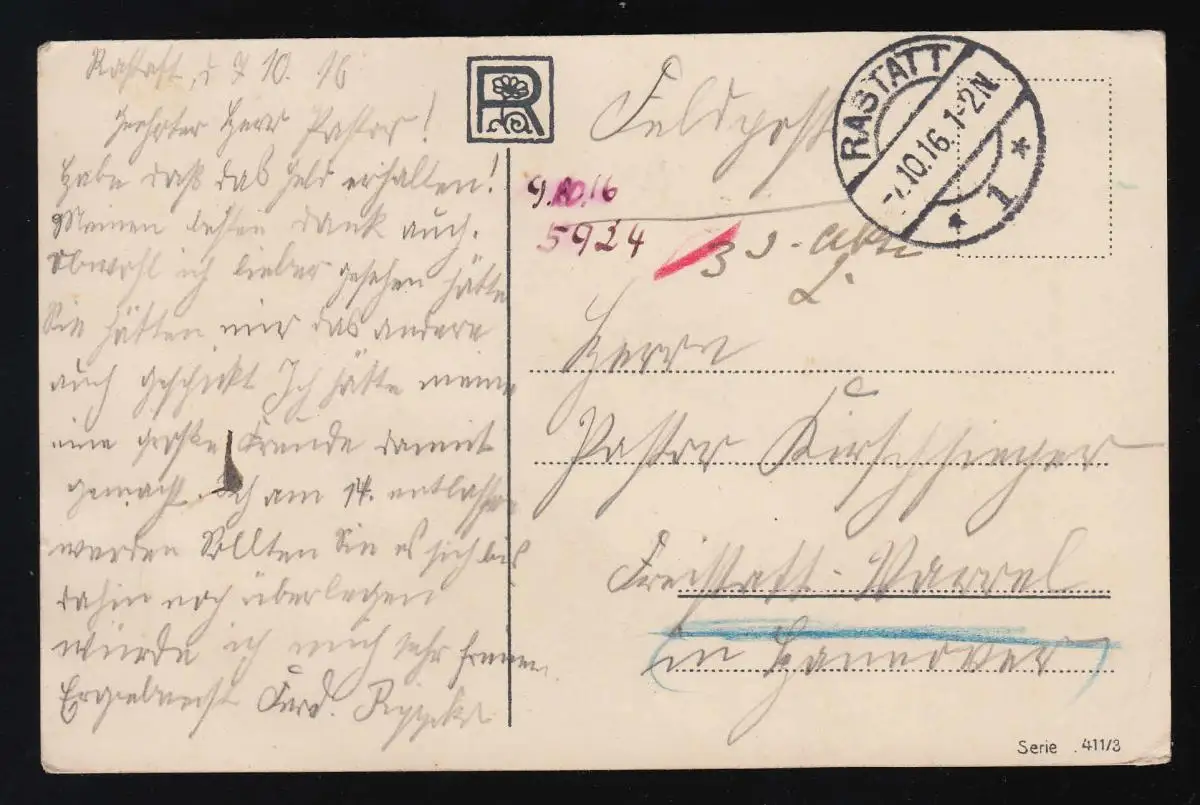 Rastatt, d 7 10. 16
Geehrter Herr Pastor!
Habe daß das Geld erhalten!
Meinen besten Dank auch.
Obwohl ich lieber gesehen hätte
Sie hätten mir das andere
auch geschickt Ich hätte meine
eine große Freude damit
gemacht. Ich am 14. entlassen
werden Sollten Sie es sich bis
dahin noch überlegen
würde ich mich sehr freuen
Ergebenst Ferd.
R
Feldpost
RASTATT
-7.10.16. 1-2N
* 1 *
9.10.16
5924
3
Herrn
Pastor
Freistatt-Varrel
in Hannover
Serie 411/3